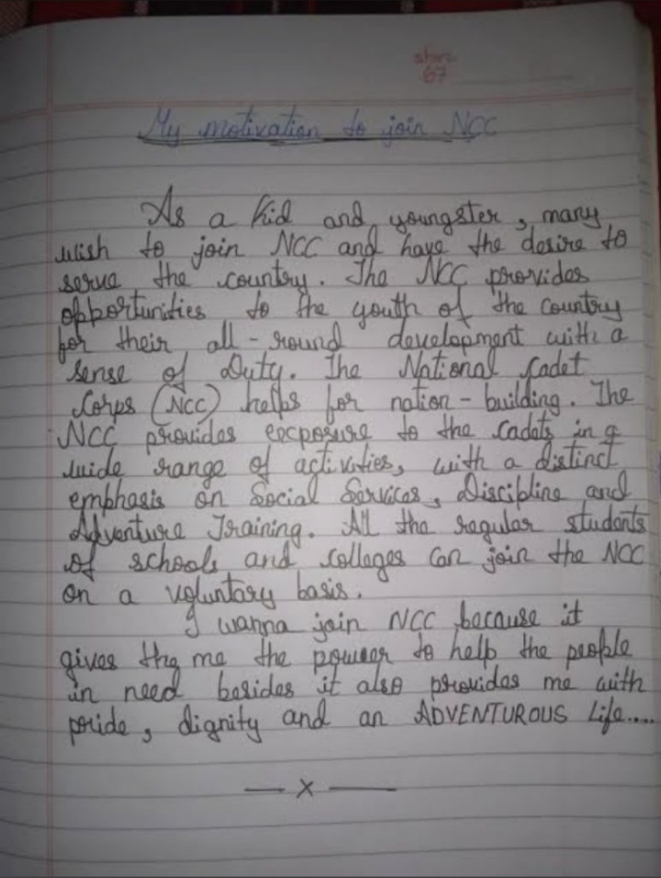 My motivation to join NCC
As a kid and youngster, many
wish to join NCC and have the desire to
serve the country. The NCC provides
opportunities to the youth of the country
for their all-round development with a
sense of Duty. The National Cadet
Corps (NCC) helps for nation-building. The
NCC provides exposure to the Cadets in a
wide range of activities, with a distinct
emphasis on Social Services, Discipline and
Adventure Training. All the regular students
of schools and colleges can join the NCC
on a voluntary basis.
I wanna join NCC because it
gives me the power to help the people
in need besides it also provides me with
pride, dignity and an ADVENTUROUS Life....
— x —